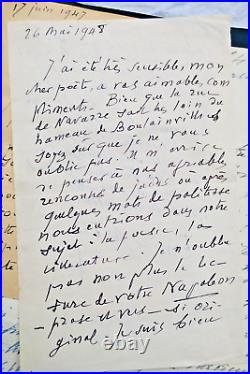 17 juin 1947
26 Mai 1948
J'ai été très sensible, mon
cher poète, à vos aimables com
pliments. Bien que la rue
de Navarre soit loin du
hameau de Boulainvilliers
soyez sûr que je ne vous
oublie pas. Il m'arrive
de penser à nos agréables
rencontres de jadis où après
quelques mots de politesse
nous entrions dans notre
sujet : la poésie, la
littérature. Je n'oublie
pas non plus la lec
ture de votre Napoléon
- prose et vers - si ori
ginal. Je suis bien